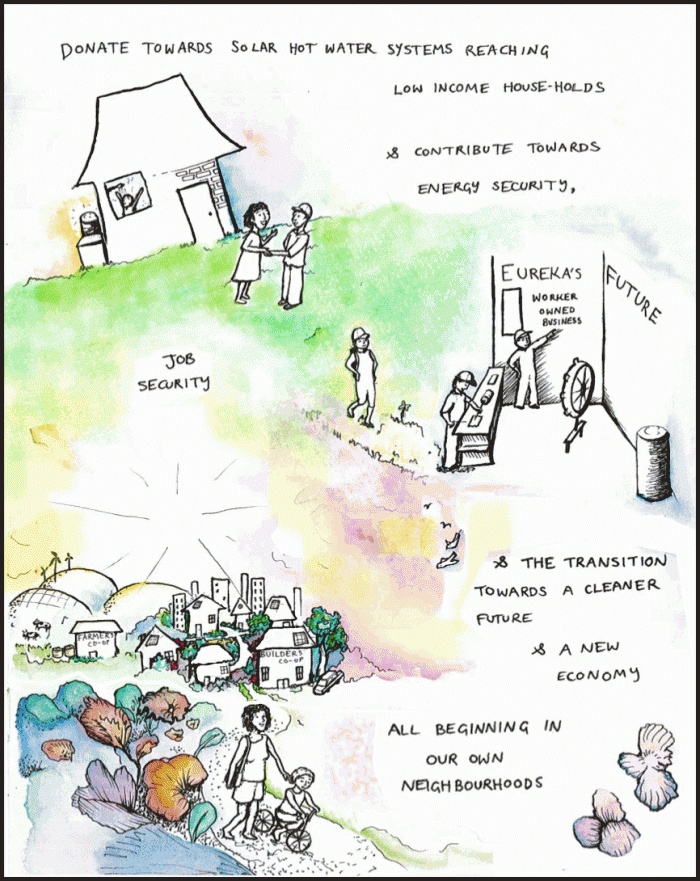 DONATE TOWARDS SOLAR HOT WATER SYSTEMS REACHING
LOW INCOME HOUSE-HOLDS
& CONTRIBUTE TOWARDS
ENERGY SECURITY,
EUREKA'S
FUTURE
WORKER
OWNED
BUSINESS
JOB
SECURITY
& THE TRANSITION
TOWARDS A CLEANER
FUTURE
& A NEW
ECONOMY
FARMERS
CO-OP
BUILDERS
CO-OP
ALL BEGINNING IN
OUR OWN
NEIGHBOURHOODS